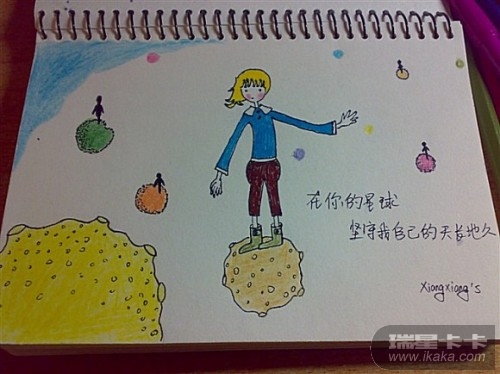 在你的星球
坚守我自己的天长地久
Xiongxiong's
瑞星卡卡
www.ikaka.com